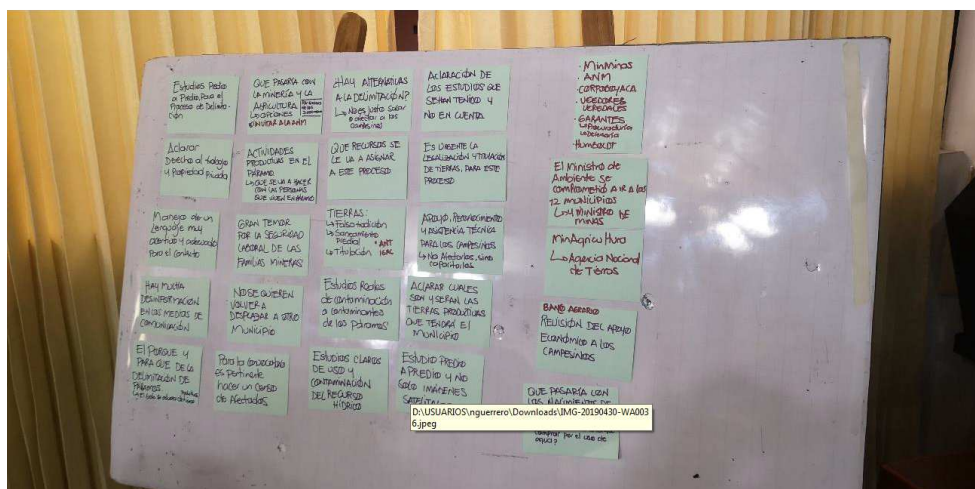 Estudios Predio
a Predio, Para el
Proceso de Delimita-
ción
QUE PASARÍA CON
LA MINERÍA Y LA
AGRICULTURA
HAY ALTERNATIVAS
A LA DELIMITACIÓN?
↳ No es justo sacar
o afectar a los
campesinos
ACLARACIÓN DE
LOS ESTUDIOS QUE
SERÁN TENIDO Y
NO EN CUENTA
· MinMinas
· ANM
· CORPOBOYACA
· VEEDORES
VEREDALES
· GARANTES
↳ Procuraduría
↳ Defensoría
Humboldt
Aclarar
Derecho al trabajo
y Propiedad Privada
ACTIVIDADES
PRODUCTIVAS EN EL
PÁRAMO
↳ QUE SE VA A HACER
CON LAS PERSONAS
QUE VIVEN EN PARAMO
QUE RECURSOS SE
LE VA A ASIGNAR
A ESTE PROCESO
ES URGENTE LA
LEGALIZACIÓN Y TITULACIÓN
DE TIERRAS, PARA ESTE
PROCESO
El Ministro de
Ambiente se
comprometió a ir a los
12 municipios
↳ y MINISTRO DE
MINAS
Manejo de un
Lenguaje muy
adecuado
Para el Contexto
GRAN TEMOR
POR LA SEGURIDAD
LABORAL DE LAS
FAMILIAS MINERAS
TIERRAS:
↳ Falsa tradición
↳ Saneamiento
Predial · ANT
↳ Titulación IGAC
APOYO, Reconocimiento
Y ASISTENCIA TÉCNICA
PARA LOS CAMPESINOS
↳ No Afectarlos, sino
capacitarlos
MinAgricultura
↳ Agencia Nacional
de Tierras
HAY MUCHA
DESINFORMACIÓN
EN LOS MEDIOS DE
COMUNICACIÓN
NO SE QUIEREN
VOLVER A
DESPLAZAR A OTRO
MUNICIPIO
Estudios Reales
de contaminación
o contaminantes
de los Páramos
ACLARAR CUALES
SON Y SERÁN LAS
TIERRAS PRODUCTIVAS
QUE TENDRÁ EL
MUNICIPIO
BANCO AGRARIO
REVISIÓN DEL APOYO
ECONÓMICO A LOS
CAMPESINOS
El PORQUE Y
PARA QUE DE LA
DELIMITACIÓN DE
PÁRAMOS
Para la convocatoria
es Pertinente
hacer un Censo
de Afectados
ESTUDIOS CLAROS
DE USO Y
CONTAMINACIÓN
DEL RECURSO
HÍDRICO
ESTUDIO PREDIO
A PREDIO Y NO
SOLO IMÁGENES
QUE PASARÍA CON
LOS NACIMIENTOS DE
por el uso de
agua?
D:\USUARIOS\nguerrero\Downloads\IMG-20190430-WA003
6.jpeg